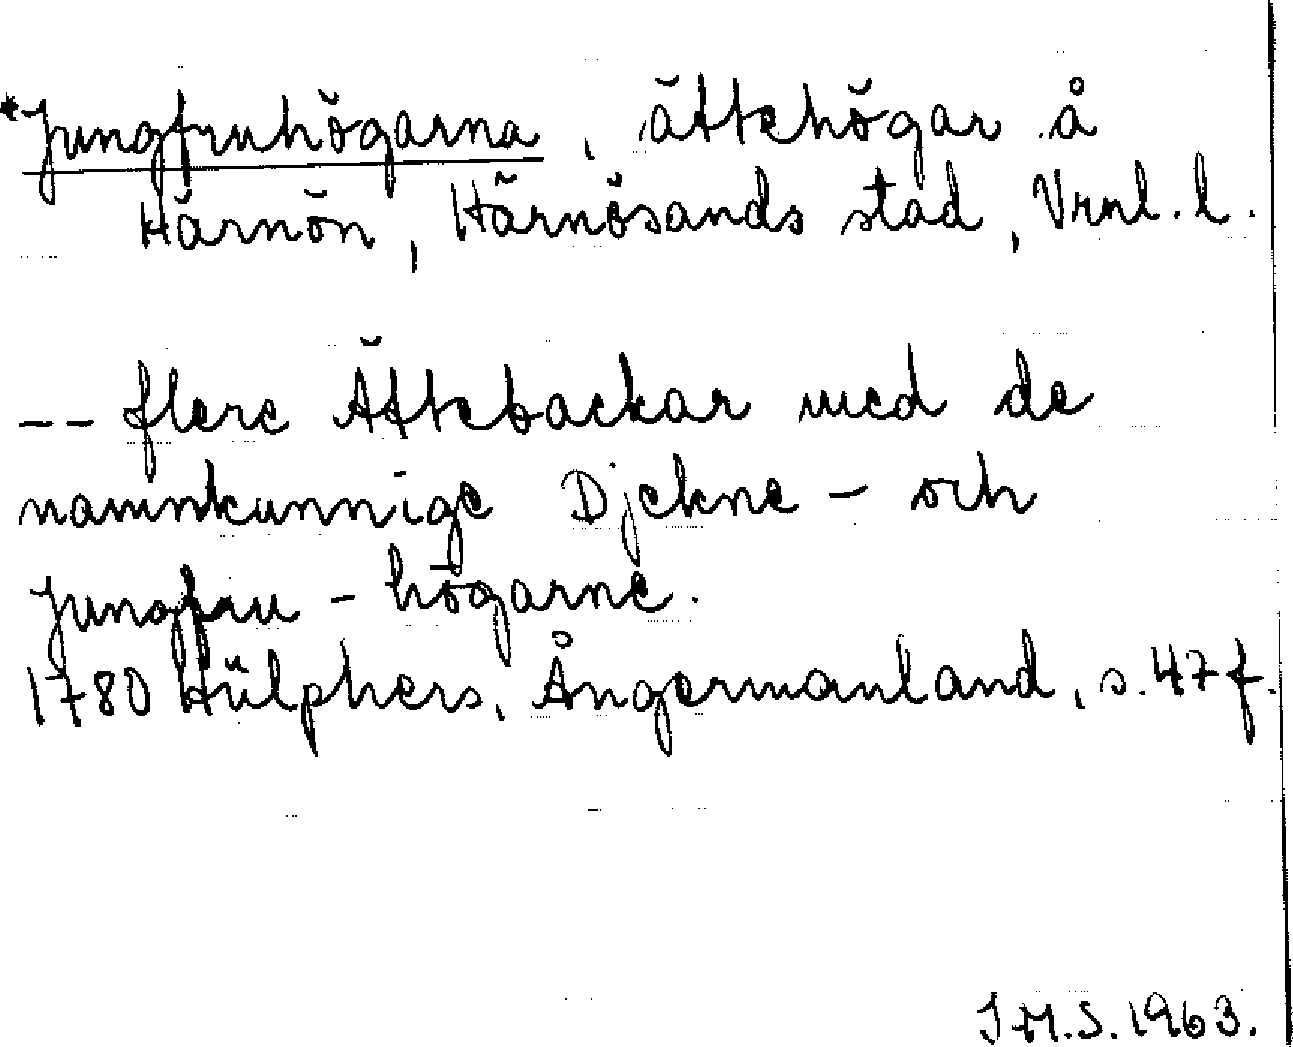 *Jungfruhögarna, ättehögar å
Härnön, Härnösands stad, Vrnl. l.
-- flere Ättebackar med de
namnkunnige Djekne - och
Jungfru - högarne.
1780 Hülphers, Ångermanland, s. 47 f.
J M. S. 1963.